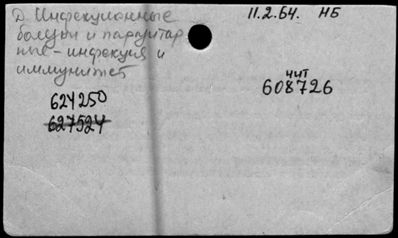 Д. Инфекционные
болезни и паразитар
ные - инфекция и
иммунитет
11.2.64. НБ
624250
627524
чит
608726